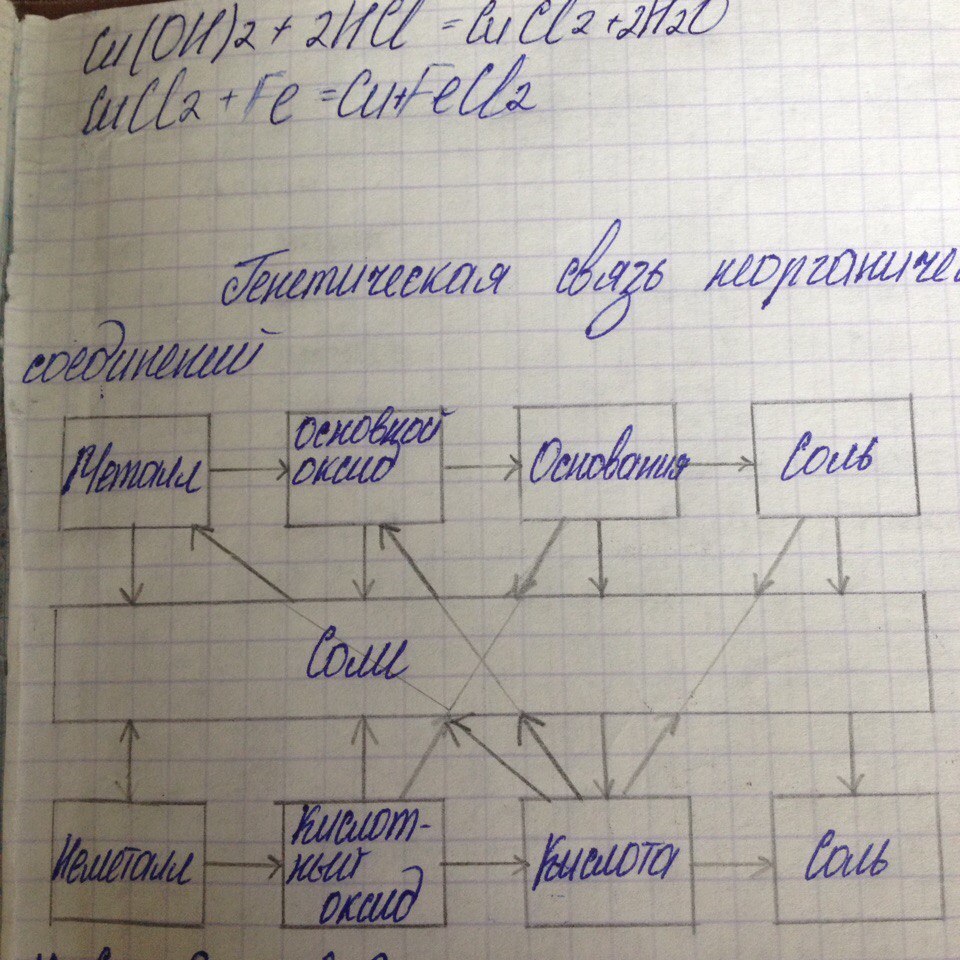 Cu(OH)2 + 2HCl = CuCl2 + 2H2O
CuCl2 + Fe = Cu + FeCl2
Генетическая связь неорганиче
соединений
Металл
основной
оксид
Основания
Соль
Соли
Неметалл
Кислот-
ный
оксид
Кислота
Соль